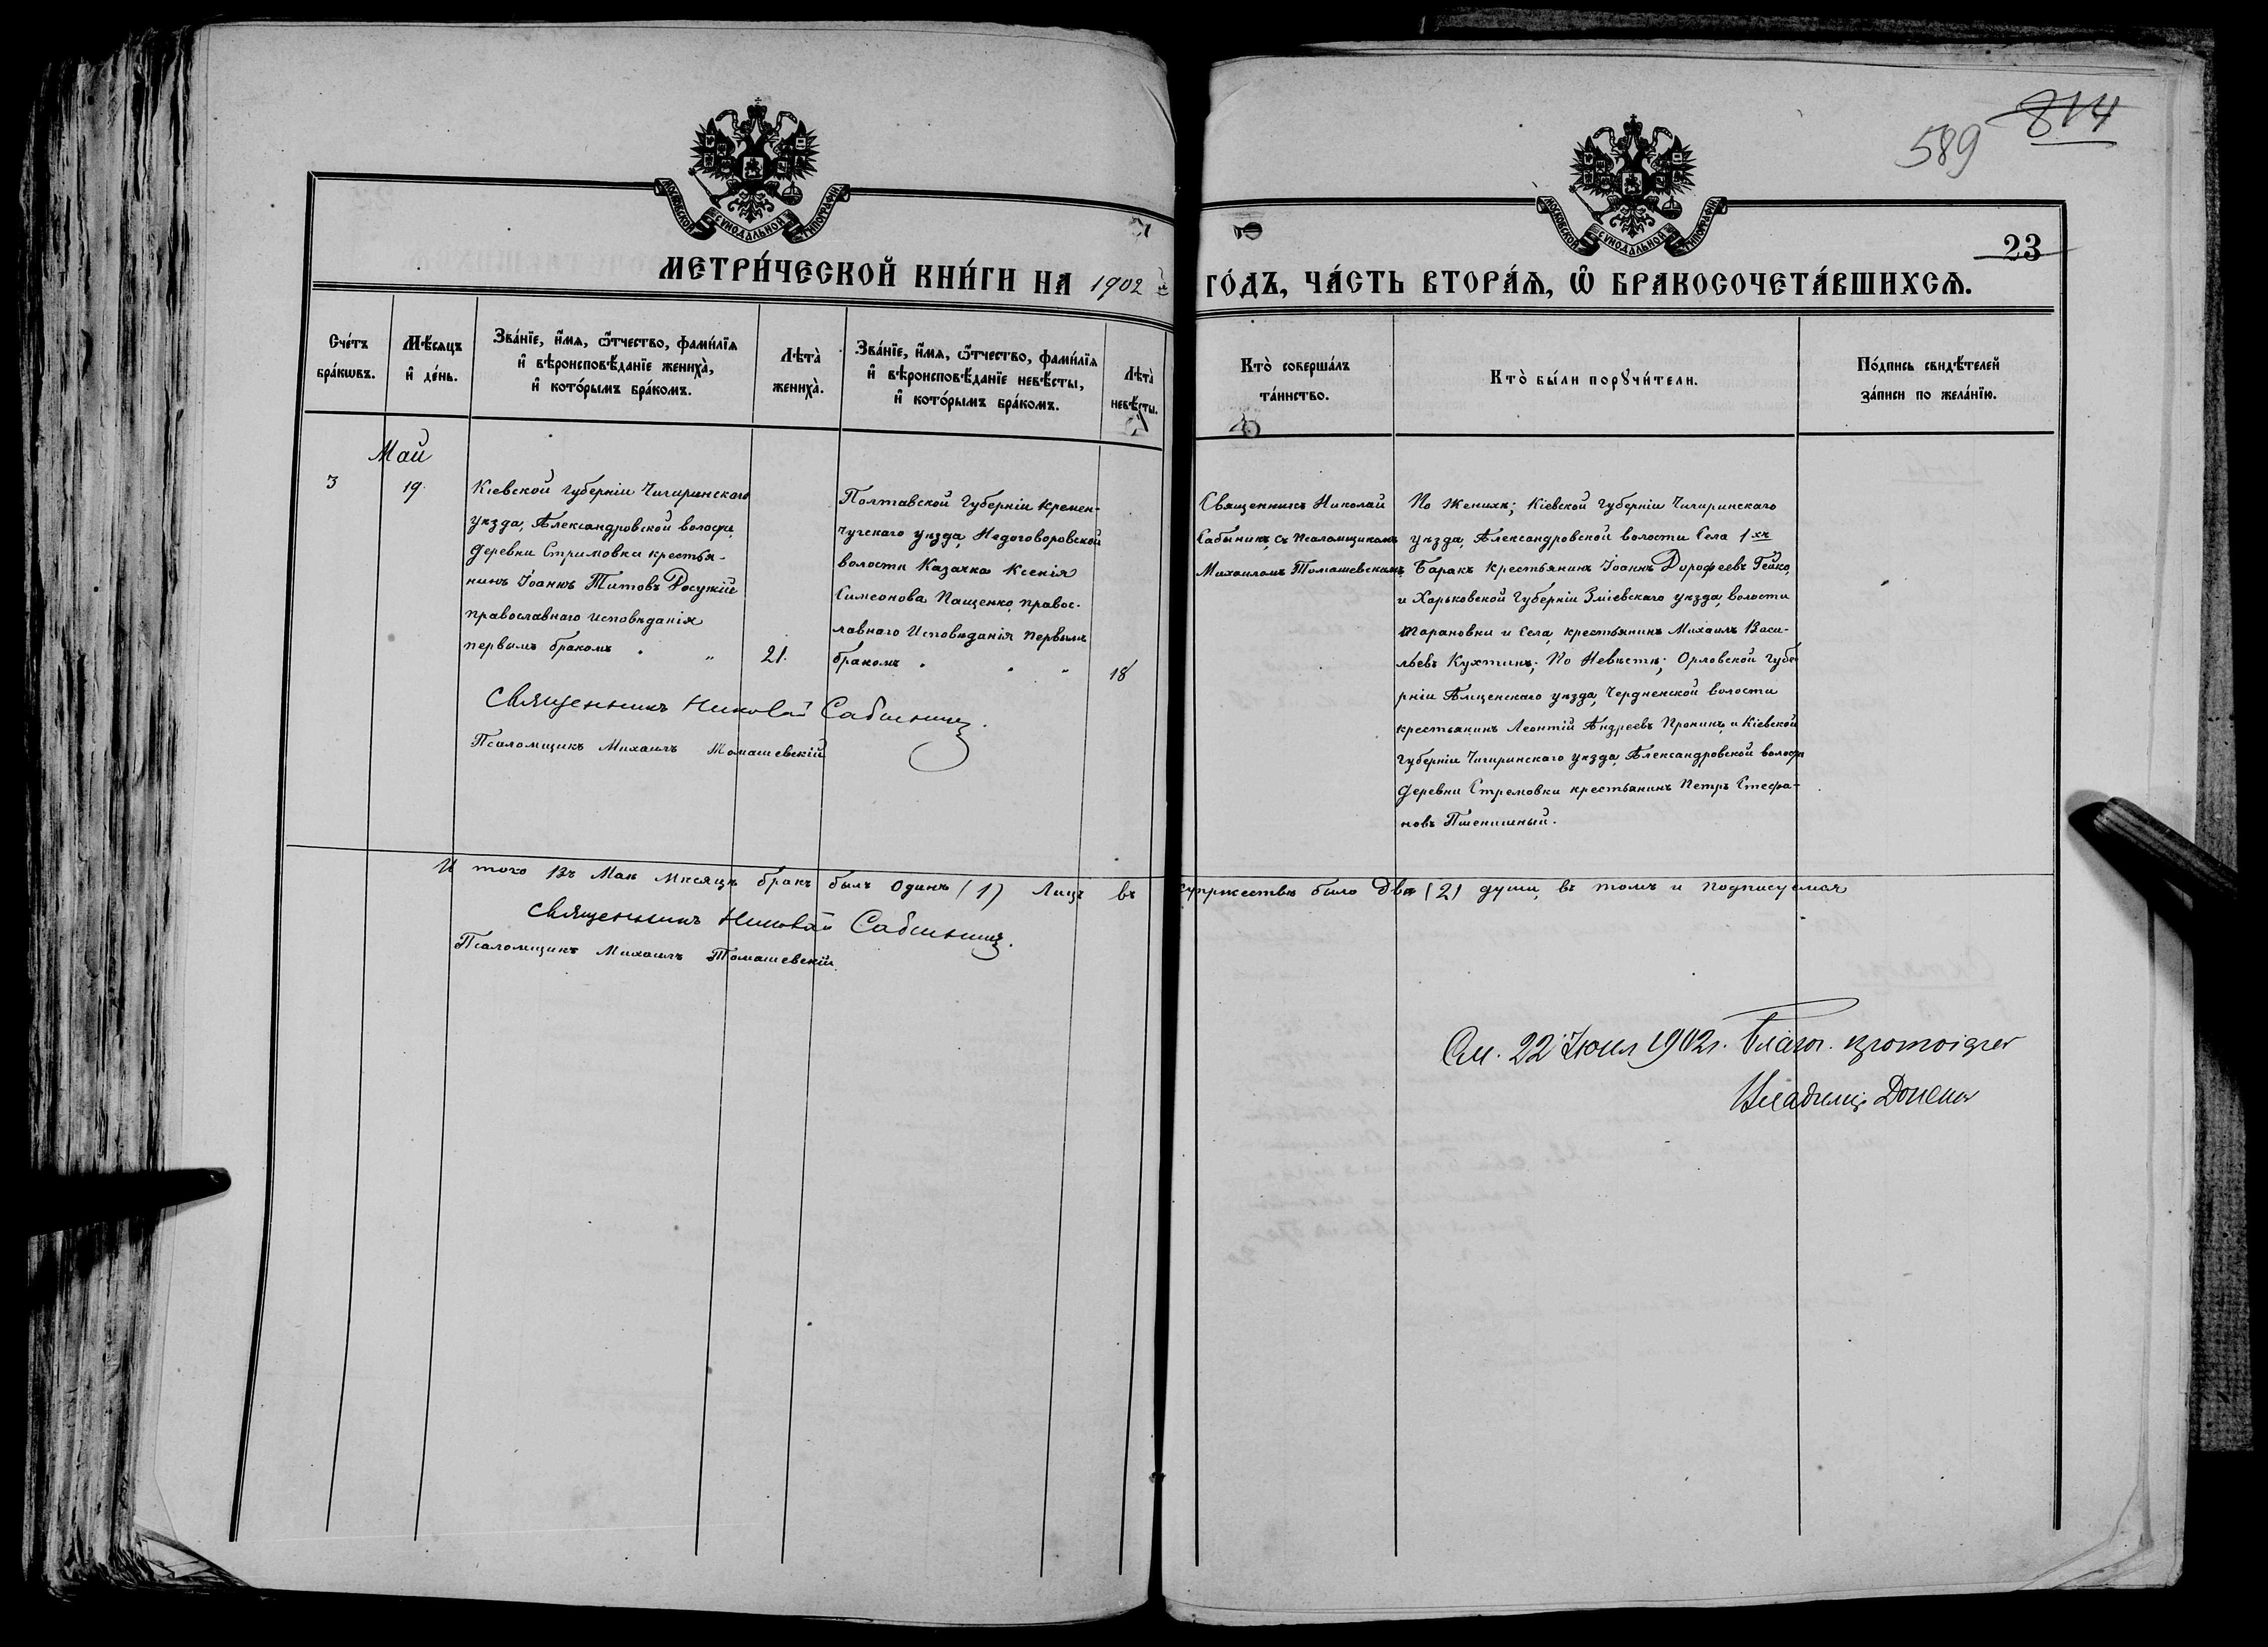 814
589
МОСКОВСКОЙ СУНОДАЛЬНОЙ ТИПОГРАФІИ
МОСКОВСКОЙ СУНОДАЛЬНОЙ ТИПОГРАФІИ
23
МЕТРИ́ЧЕСКОЙ КНИ́ГИ НА 1902 ГО́ДЪ, ЧА́СТЬ ВТОРА́Ѧ, Ѽ БРАКОСОЧЕТА́ВШИХСѦ.
Сче́тъ
бра́кѡвъ.
Мѣ́сяцъ
и҆ де́нь.
Зва́нїе, и҆́мѧ, ѻ҆́тчество, фами́лїѧ
и҆ вѣроисповѣ́данїе жениха̀,
и҆ кото́рымъ бра́комъ.
Лѣта̀
жениха̀.
Зва́нїе, и҆́мѧ, ѻ҆́тчество, фами́лїѧ
и҆ вѣроисповѣ́данїе невѣ́сты,
и҆ кото́рымъ бра́комъ.
Лѣта̀
невѣ́сты.
Кто̀ соверша́лъ
та́инство.
Кто̀ бы́ли порꙋчи́тели.
По́дпись свидѣ́телей
за́писи по жела́нїю.
Май
3
19.
Кіевской губерніи Чигиринскаго
уѣзда, Александровской волости,
деревни Стримовки крестья-
нинъ Іоаннъ Титовъ Досужій
православнаго исповѣданія
первымъ бракомъ
21.
Полтавской Губерніи Кремен-
чугскаго уѣзда, Недогоровской
волости Казачка Ксенія
Симеонова Пащенко, правос-
лавнаго Исповѣданія первымъ
бракомъ
18
Священникъ Николай
Сабынинъ, съ Псаломщикомъ
Михаиломъ Томашевскимъ.
По Женихѣ; Кіевской Губерніи Чигиринскаго
уѣзда, Александровской волости Села 1хъ
Баракъ крестьянинъ Іоаннъ Дорофеевъ Гейко,
и Харьковской Губерніи Зміевскаго уѣзда, волости
Тарановки и Села, крестьянинъ Михаилъ Васи-
льевъ Кухтинъ; По Невѣстѣ; Орловской Губе-
рніи Амценскаго уѣзда, Чердненской волости
крестьянинъ Леонтій Андреевъ Пронинъ, и Кіевской
Губерніи Чигиринскаго уѣзда, Александровской волости
деревни Стремовки крестьянинъ Петръ Стефа-
новъ Пшенишный.
Священникъ Николай Сабынинъ.
Псаломщикъ Михаилъ Томашевскій
И того въ Маѣ мѣсяцѣ бракъ былъ одинъ (1) Лицъ въ супружествѣ было двѣ (2) души, въ томъ и подписуемся
Священникъ Николай Сабынинъ.
Псаломщикъ Михаилъ Томашевскій.
См. 22 Іюля 1902 г. Благоч.
Владиміръ